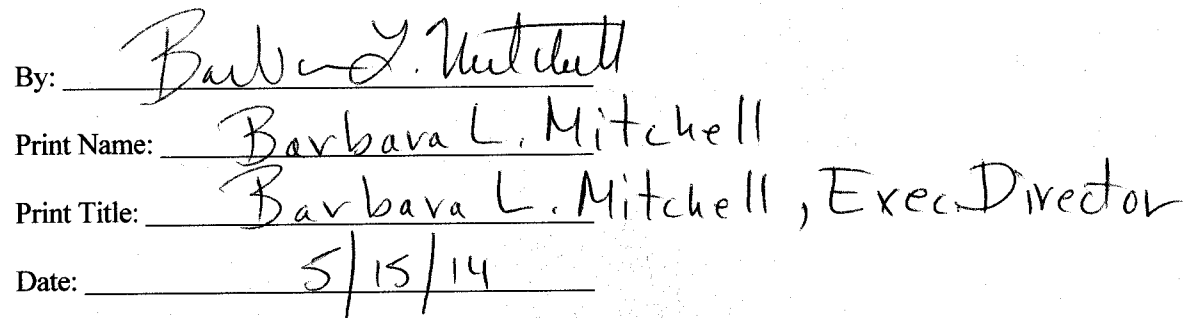 By: Barbara L. Mitchell
Print Name: Barbara L. Mitchell
Print Title: Barbara L. Mitchell, Exec. Director
Date: 5/15/14